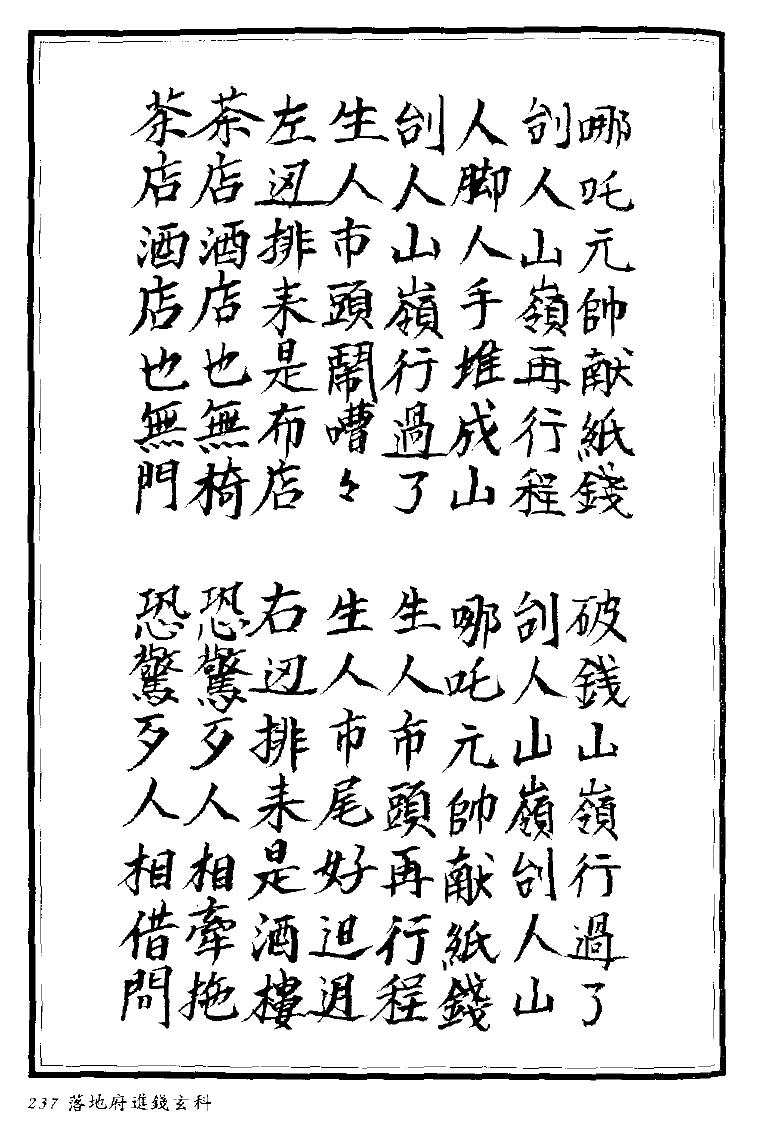 哪吒元帥献紙錢 破錢山嶺行過了
刣人山嶺再行程 刣人山嶺刣人山
人脚人手堆成山 哪吒元帥献紙錢
刣人山嶺行過了 生人市頭再行程
生人市頭鬧嘈々 生人市尾好𨑨迌
左边排来是布店 右边排来是酒樓
茶店酒店也無椅 恐驚歹人相牽拖
茶店酒店也無門 恐驚歹人相借問
237 落地府進錢玄科